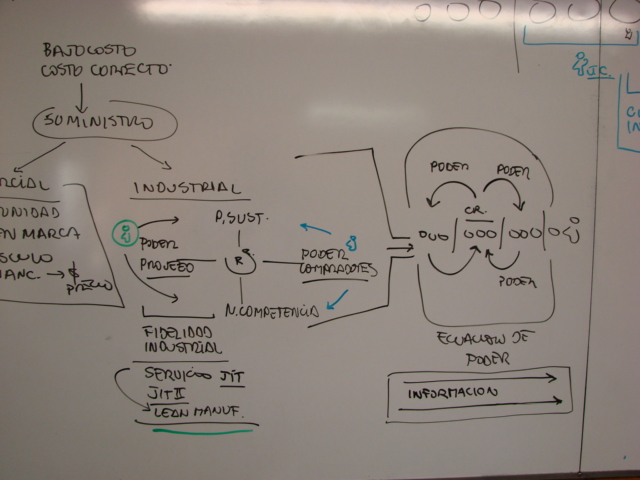 BAJO COSTO
COSTO CORRECTO
SUMINISTRO
RCIAL
UNIDAD
EN MARCA
SCULO
ANC. → $
PRECIO
INDUSTRIAL
P. SUST.
PODER
PROVEED
R
PODER
COMPRADORES
N. COMPETENCIA
FIDELIDAD
INDUSTRIAL
SERVICIO JIT
JIT II
LEAN MANUF.
PODER PODER
CR.
PODER
ECUACION DE
PODER
INFORMACION
J.C.
CO
IN